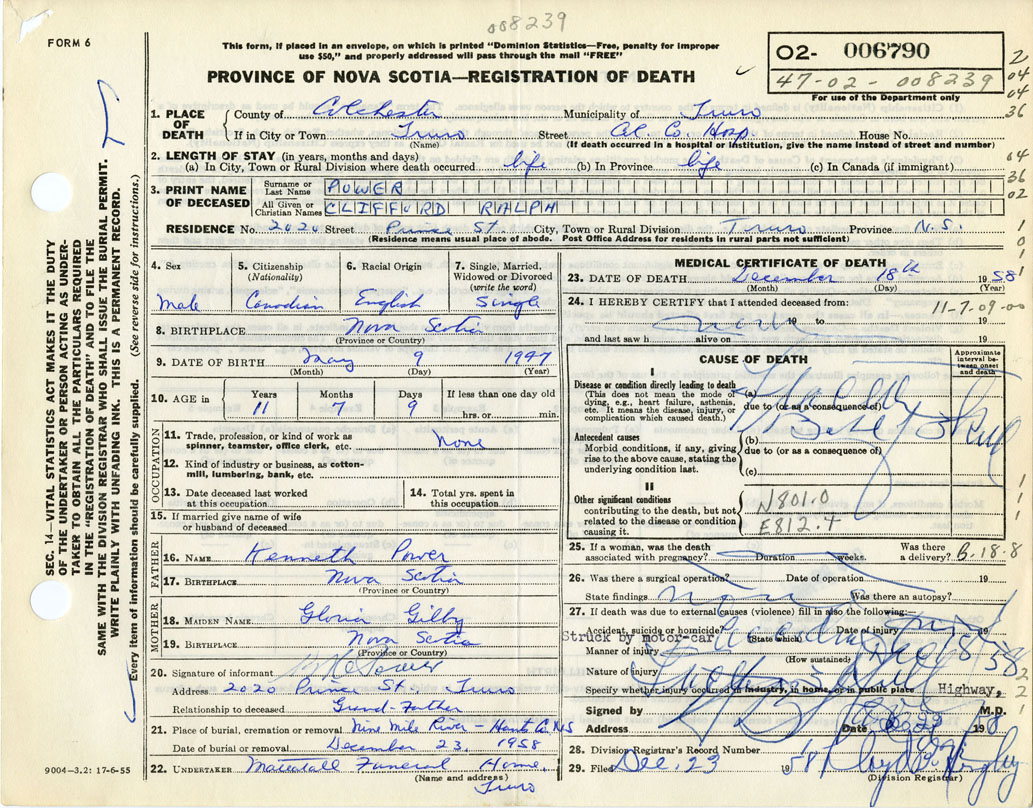 008239
FORM 6
This form, if placed in an envelope, on which is printed "Dominion Statistics—Free, penalty for improper
use $50," and properly addressed will pass through the mail "FREE"
O2- 006790
47-02-008239
For use of the Department only
PROVINCE OF NOVA SCOTIA—REGISTRATION OF DEATH
1. PLACE OF DEATH
County of Colchester Municipality of Truro
If in City or Town Truro Street Col. Co. Hosp. House No.
(Name) (If death occurred in a hospital or institution, give the name instead of street and number)
2. LENGTH OF STAY (in years, months and days)
(a) In City, Town or Rural Division where death occurred life (b) In Province life (c) In Canada (if immigrant)
3. PRINT NAME OF DECEASED
Surname or Last Name POWER
All Given or Christian Names CLIFFORD RALPH
RESIDENCE No. 2020 Street Prince St. City, Town or Rural Division Truro Province N.S.
(Residence means usual place of abode. Post Office Address for residents in rural parts not sufficient)
4. Sex Male
5. Citizenship (Nationality) Canadian
6. Racial Origin English
7. Single, Married, Widowed or Divorced (write the word) Single
8. BIRTHPLACE Nova Scotia
(Province or Country)
9. DATE OF BIRTH May 9 1947
(Month) (Day) (Year)
10. AGE in Years 11 Months 7 Days 9 If less than one day old
hrs. or min.
OCCUPATION
11. Trade, profession, or kind of work as
spinner, teamster, office clerk, etc. None
12. Kind of industry or business, as cotton-
mill, lumbering, bank, etc.
13. Date deceased last worked
at this occupation
14. Total yrs. spent in
this occupation
15. If married give name of wife
or husband of deceased
FATHER
16. NAME Kenneth Power
17. BIRTHPLACE Nova Scotia
(Province or Country)
MOTHER
18. MAIDEN NAME Gloria Gilby
19. BIRTHPLACE Nova Scotia
(Province or Country)
20. Signature of informant Power
Address 2020 Prince St. Truro
Relationship to deceased Grand-Father
21. Place of burial, cremation or removal Nine Mile River - Hants Co. N.S
Date of burial or removal December 23, 1958
22. UNDERTAKER Funeral Home,
(Name and address)
Truro
9004-3.2: 17-6-55
MEDICAL CERTIFICATE OF DEATH
23. DATE OF DEATH December 18th 1958
(Month) (Day) (Year)
24. I HEREBY CERTIFY that I attended deceased from: 11-7-09-00
19 to 19
and last saw h alive on 19
CAUSE OF DEATH
Approximate interval between onset and death
I
Disease or condition directly leading to death
(This does not mean the mode of
dying, e.g., heart failure, asthenia,
etc. It means the disease, injury, or
complication which caused death.)
(a)
due to (or as a consequence of)
Antecedent causes
Morbid conditions, if any, giving
rise to the above cause, stating the
underlying condition last.
(b)
due to (or as a consequence of)
(c)
II
Other significant conditions
contributing to the death, but not
related to the disease or condition
causing it.
N801.0
E812.4
25. If a woman, was the death
associated with pregnancy? Duration weeks. Was there
a delivery? B-18-8
26. Was there a surgical operation? Date of operation 19
State findings Was there an autopsy?
27. If death was due to external causes (violence) fill in also the following:
Accident, suicide or homicide? Date of injury 19
Struck by motor-car (State which)
Manner of injury
(How sustained)
Nature of injury
Specify whether injury occurred in industry, in home, or in public place Highway,
Signed by M.D.
Address Date
28. Division Registrar's Record Number
29. Filed Dec. 23 1958
(Division Registrar)
SEC. 14—VITAL STATISTICS ACT MAKES IT THE DUTY
OF THE UNDERTAKER OR PERSON ACTING AS UNDER-
TAKER TO OBTAIN ALL THE PARTICULARS REQUIRED
IN THE "REGISTRATION OF DEATH" AND TO FILE THE
SAME WITH THE DIVISION REGISTRAR WHO SHALL ISSUE THE BURIAL PERMIT.
WRITE PLAINLY WITH UNFADING INK. THIS IS A PERMANENT RECORD.
Every item of information should be carefully supplied. (See reverse side for instructions.)
2
04
04
36
04
36
02